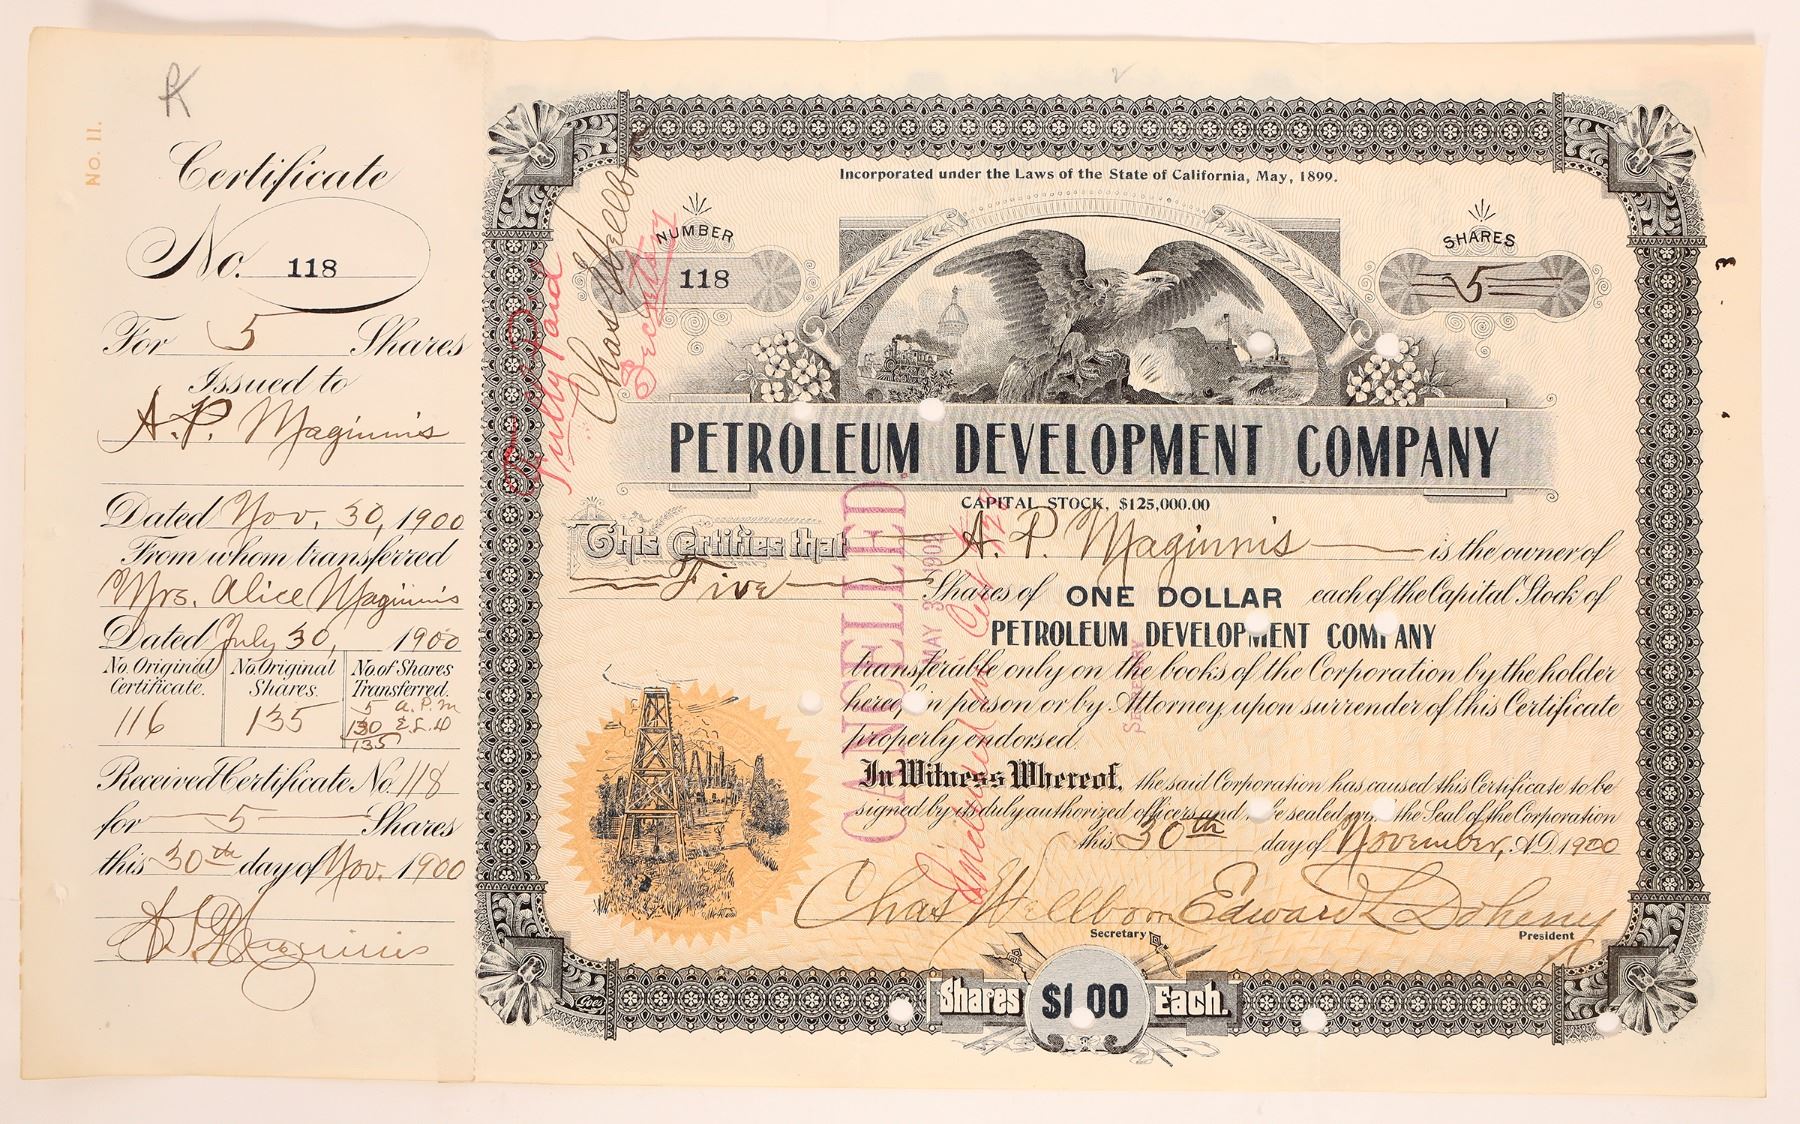 NO. 11.
Certificate
No. 118
For 5 Shares
Issued to
A. P. Maginnis
Dated Nov. 30, 1900
From whom transferred
Mrs. Alice Maginnis
Dated July 30, 1900
No. Original Certificate. No. Original Shares. No. of Shares Transferred.
116 135 5 A.P.M
130 E.L.D
135
Received Certificate No. 118
for 5 Shares
this 30th day of Nov. 1900
A P Maginnis
Fully Paid
Chas Wellborn
Secretary
Incorporated under the Laws of the State of California, May, 1899.
NUMBER
118
SHARES
5
PETROLEUM DEVELOPMENT COMPANY
CAPITAL STOCK, $125,000.00
This Certifies that A. P. Maginnis is the owner of
Five Shares of ONE DOLLAR each of the Capital Stock of
PETROLEUM DEVELOPMENT COMPANY
transferable only on the books of the Corporation by the holder
hereof in person or by Attorney, upon surrender of this Certificate
properly endorsed.
In Witness Whereof, the said Corporation has caused this Certificate to be
signed by its duly authorized officers and to be sealed with the Seal of the Corporation
this 30th day of November, A.D. 1900
Chas Wellborn Edward L Doheny
Secretary President
CANCELLED.
SECRETARY
Shares $1.00 Each.
Goes